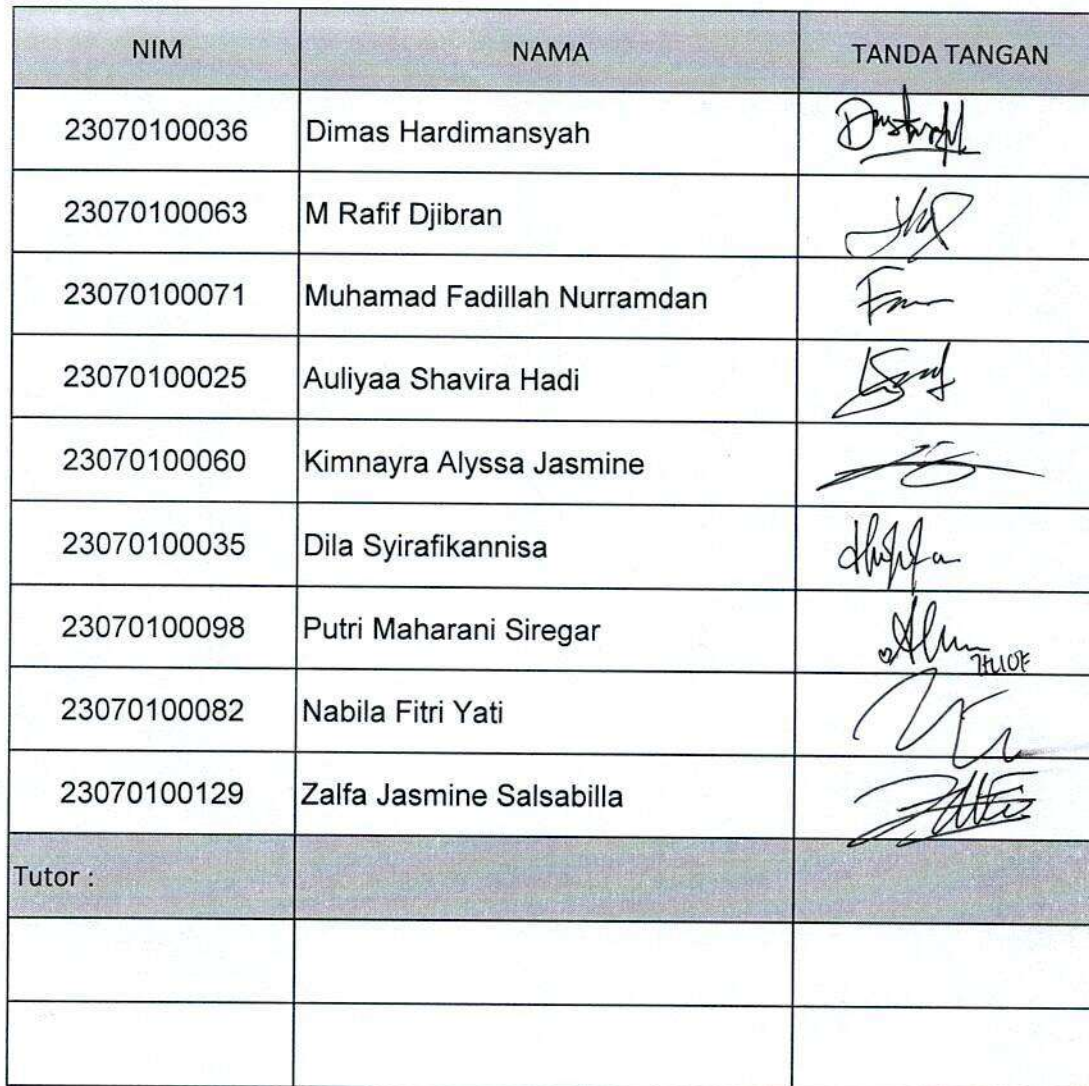 NIM NAMA TANDA TANGAN
23070100036 Dimas Hardimansyah
23070100063 M Rafif Djibran
23070100071 Muhamad Fadillah Nurramdan
23070100025 Auliyaa Shavira Hadi
23070100060 Kimnayra Alyssa Jasmine
23070100035 Dila Syirafikannisa
23070100098 Putri Maharani Siregar
23070100082 Nabila Fitri Yati
23070100129 Zalfa Jasmine Salsabilla
Tutor :